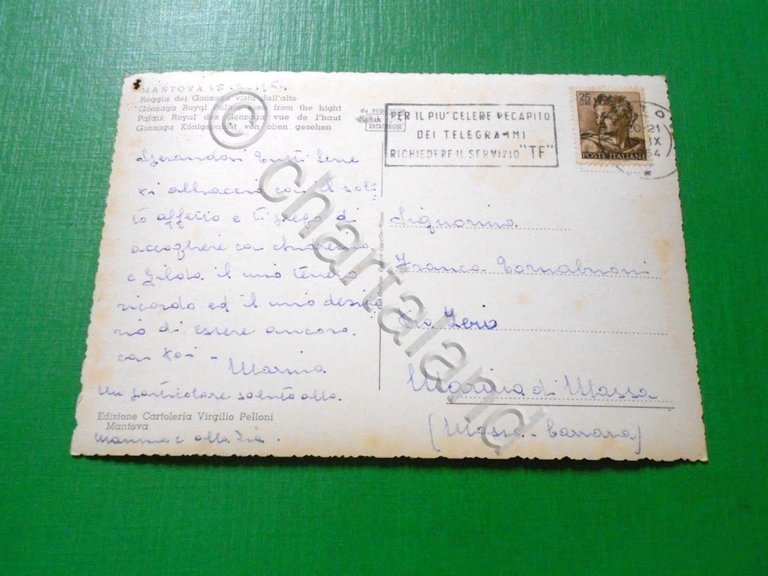 MANTOVA
Reggia dei Gonzaga vista dall'alto
Gonzaga Royal Palace seen from the hight
Palais Royal des Gonzaga vue de l'haut
Gonzaga Königspalast von oben gesehen
Sperandovi tutti bene
vi abbraccio con il soli-
to affetto e ti prego di
accogliere con
e Gilda il mio tenero
ricordo ed il mio deside
rio di essere ancora
con voi - Marina
Un particolare saluto alla
mamma e alla zia
Edizione Cartoleria Virgilio Pelloni
Mantova
PER IL PIU' CELERE RECAPITO
DEI TELEGRAMMI
RICHIEDERE IL SERVIZIO "TF"
25
POSTE ITALIANE
21
IX
64
Signorina
Franca Tornabuoni
Via
Marina di Massa
(Massa-Carrara)
© chartaland